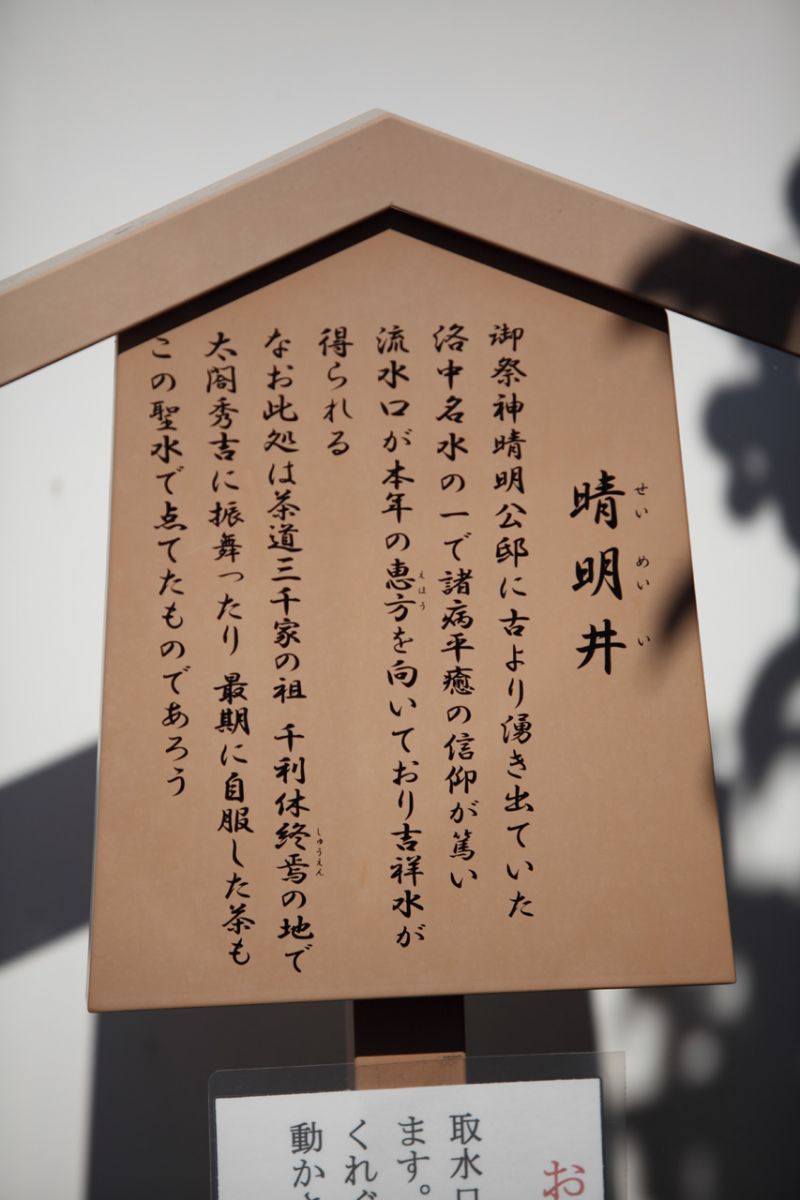 晴明井
せい めい い
御祭神晴明公邸に古より湧き出ていた
洛中名水の一で諸病平癒の信仰が篤い
流水口が本年の恵方を向いており吉祥水が
えほう
得られる
なお此処は茶道三千家の祖 千利休終焉の地で
しゅうえん
太閤秀吉に振舞ったり 最期に自服した茶も
この聖水で点てたものであろう
お
取水口
ます。
くれぐ
動かと